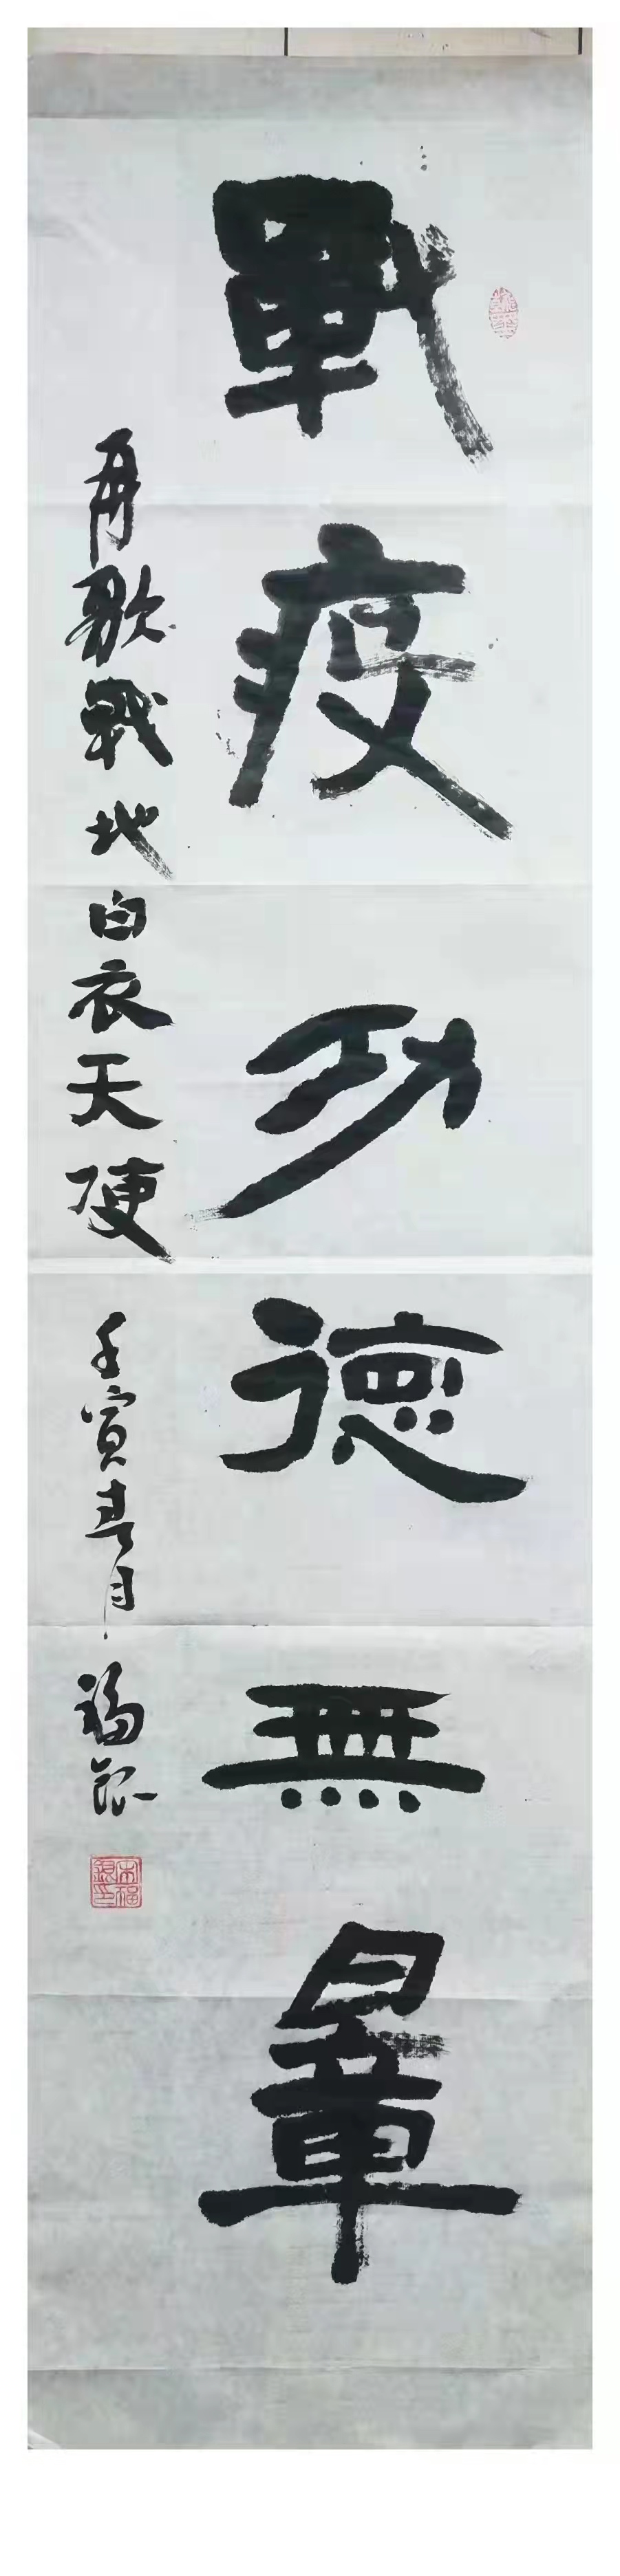 戰疫功德無量
再歌戰地白衣天使 壬寅春月 福